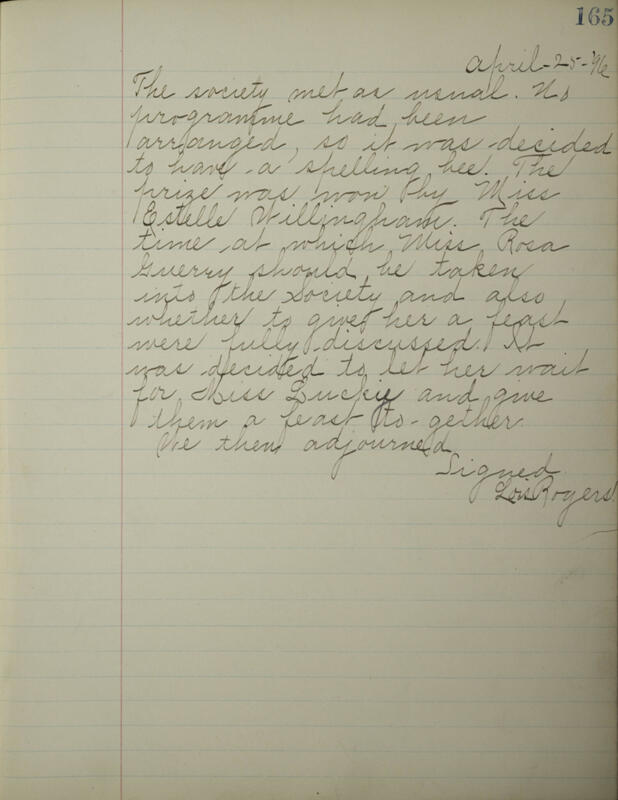 165
April-25-'96
The society met as usual. No
programme had been
arranged, so it was decided
to have a spelling bee. The
prize was won by Miss
Estelle Willingham. The
time at which Miss Rosa
Guerry should be taken
into the Society and also
whether to give her a feast
were fully discussed. It
was decided to let her wait
for Miss Luckie and give
them a feast to-gether.
We then adjourned
Signed
Lois Rogers.